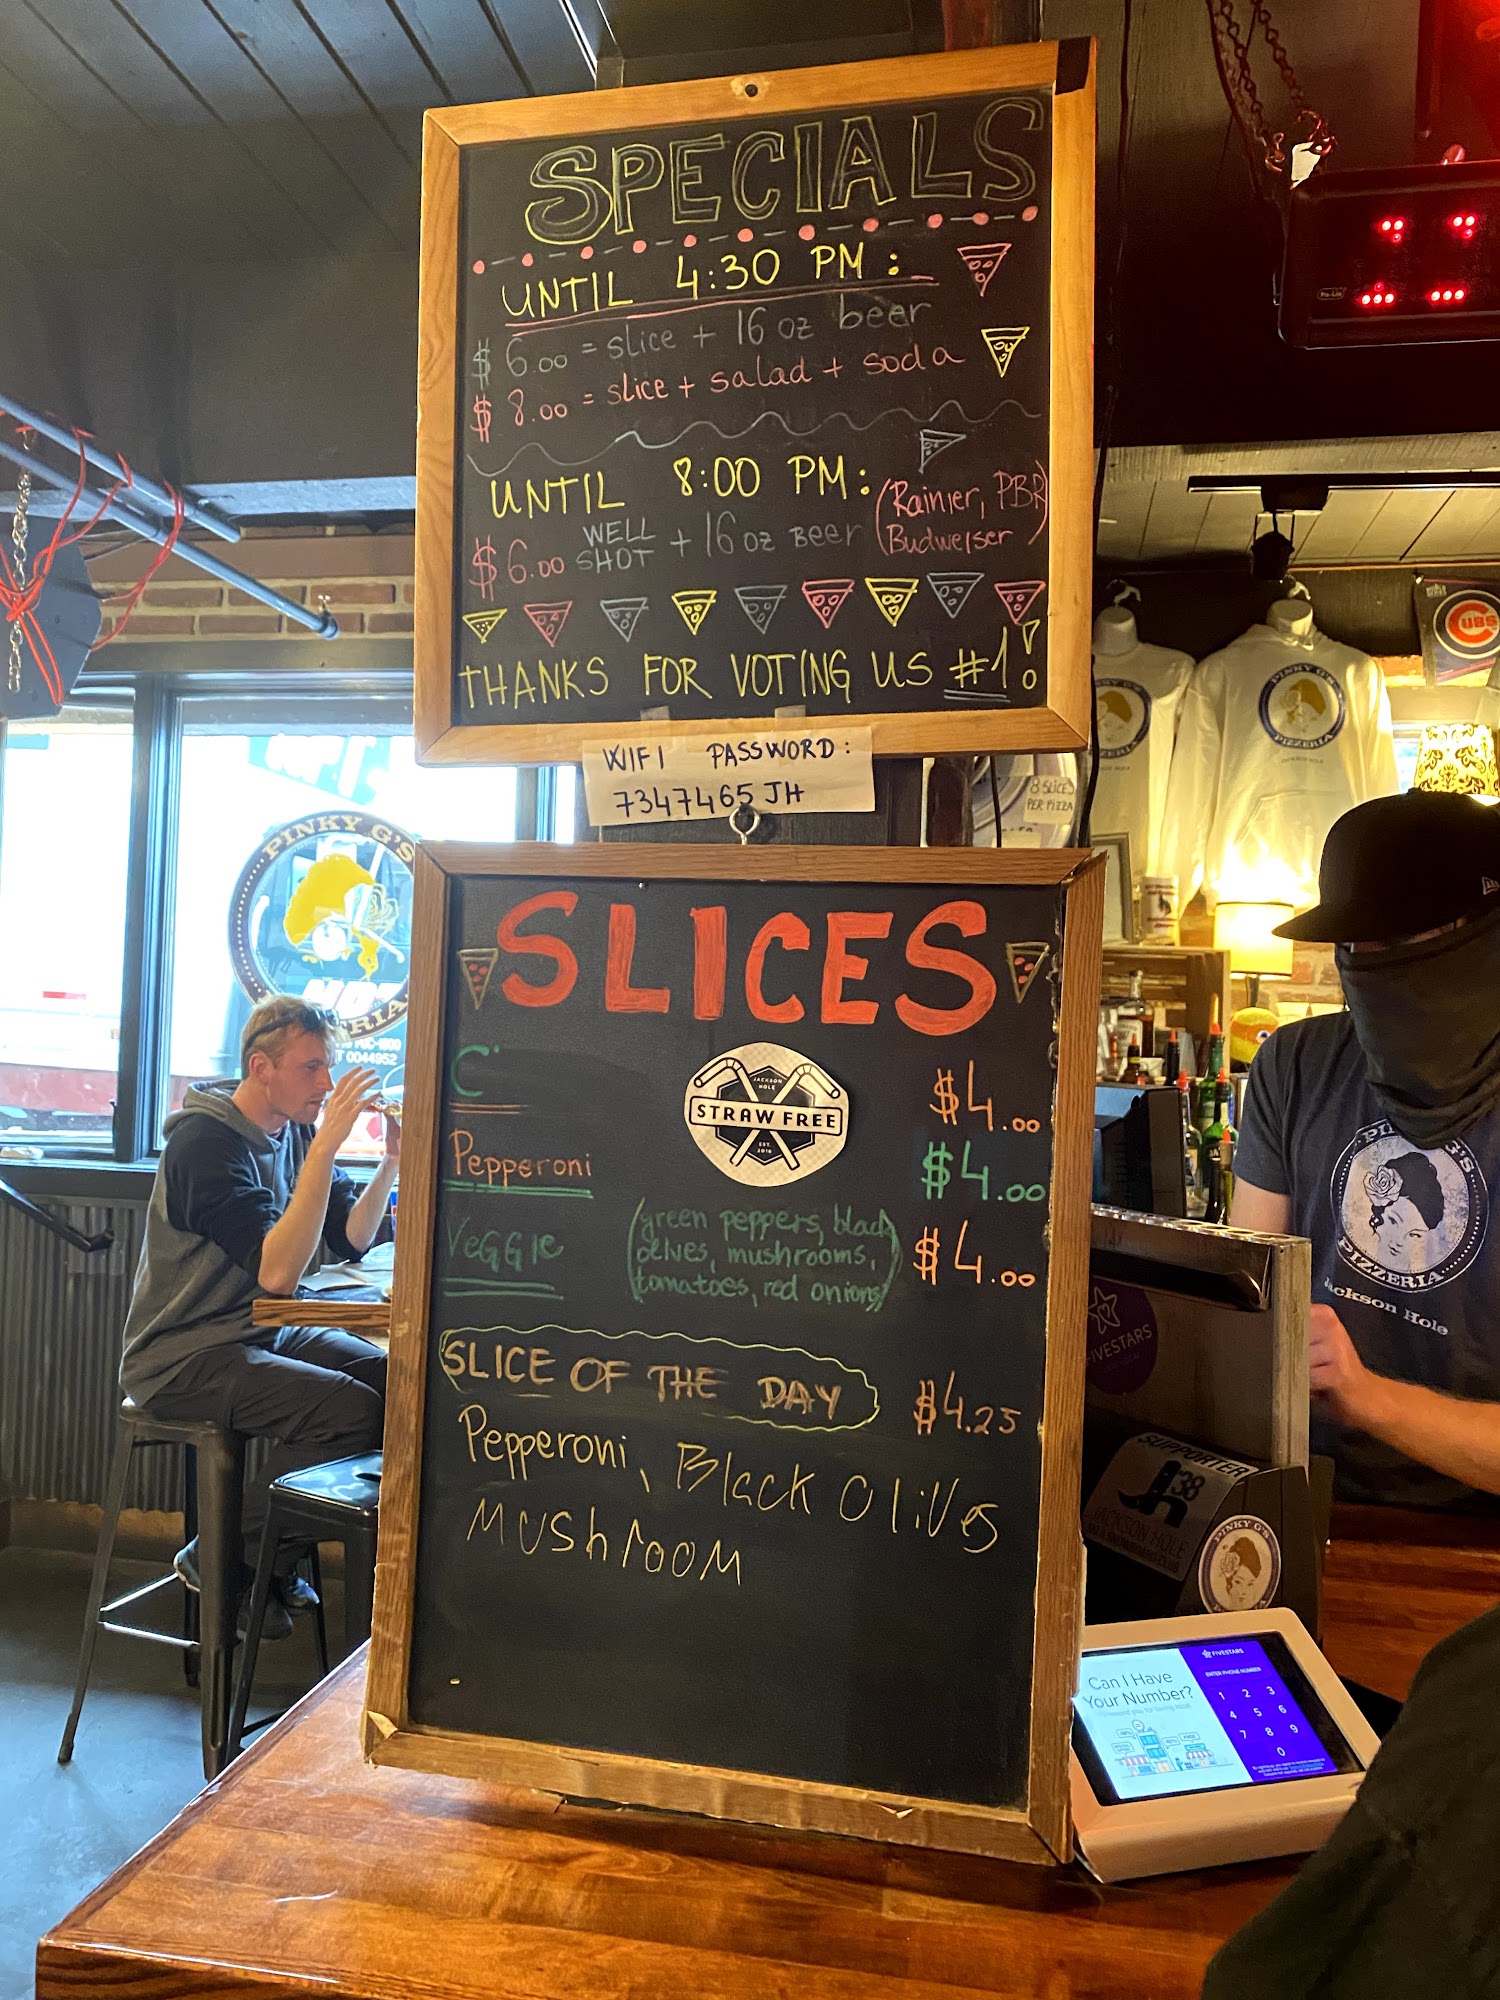 SPECIALS
UNTIL 4:30 PM:
$ 6.00 = slice + 16 oz beer
$ 8.00 = slice + salad + soda
UNTIL 8:00 PM:
$6.00 WELL SHOT + 16 oz BEER (Rainier, PBR
Budweiser)
THANKS FOR VOTING US #1!
WIFI PASSWORD:
7347465JH
8 SLICES
PER PIZZA
SLICES
C' $4.00
JACKSON
HOLE
STRAW FREE
EST.
2018
Pepperoni $4.00
VeGGIe (green peppers, black
olives, mushrooms,
tomatoes, red onions) $4.00
SLICE OF THE DAY $4.25
Pepperoni, Black Olives
Mushroom
PINKY G'S
0044952
PINKY G'S
PIZZERIA
JACKSON HOLE
CUBS
PINKY G'S
PIZZERIA
Jackson Hole
FIVESTARS
SUPPORTER
38
JACKSON HOLE
PINKY G'S
FIVESTARS
Can I Have
Your Number?
ENTER PHONE NUMBER
1 2 3
4 5 6
7 8 9
0